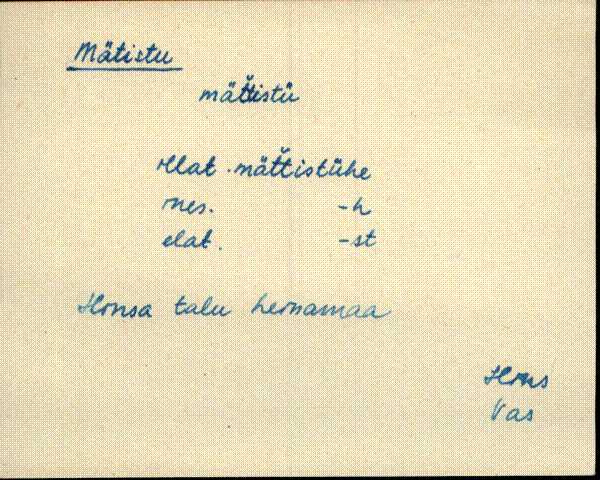 Mätistu
mät̆tistü
illat. mät̆tistühe
ines. -h
elat. -st
Honsa talu heinamaa
Vas